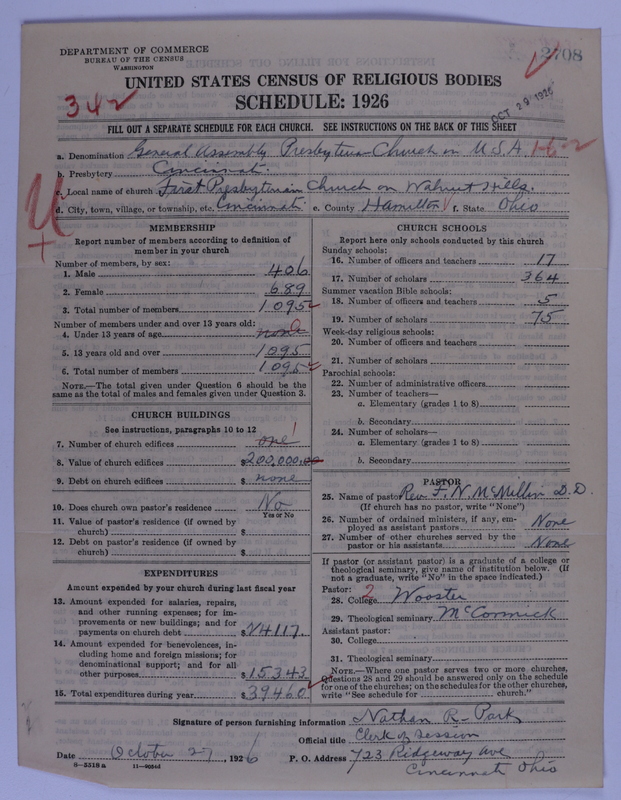 DEPARTMENT OF COMMERCE
BUREAU OF THE CENSUS
WASHINGTON
2708
UNITED STATES CENSUS OF RELIGIOUS BODIES
342
SCHEDULE: 1926
OCT 29 1926
FILL OUT A SEPARATE SCHEDULE FOR EACH CHURCH. SEE INSTRUCTIONS ON THE BACK OF THIS SHEET
a. Denomination General Assembly Presbyterian Church in U.S.A. 1-6-2
b. Presbytery Cincinnati
c. Local name of church First Presbyterian Church on Walnut Hills.
d. City, town, village, or township, etc. Cincinnati e. County Hamilton f. State Ohio
MEMBERSHIP
Report number of members according to definition of
member in your church
Number of members, by sex:
1. Male 406
2. Female 689
3. Total number of members 1095
Number of members under and over 13 years old:
4. Under 13 years of age none 0
5. 13 years old and over 1095
6. Total number of members 1095
NOTE.—The total given under Question 6 should be
same as the total of males and females given under Question 3.
CHURCH BUILDINGS
See instructions, paragraphs 10 to 12
7. Number of church edifices one 1
8. Value of church edifices $200,000.00
9. Debt on church edifices $ none
10. Does church own pastor's residence No
Yes or No
11. Value of pastor's residence (if owned by
church) $
12. Debt on pastor's residence (if owned by
church) $
EXPENDITURES
Amount expended by your church during last fiscal year
13. Amount expended for salaries, repairs,
and other running expenses; for im-
provements or new buildings; and for
payments on church debt $24117.
14. Amount expended for benevolences, in-
cluding home and foreign missions; for
denominational support; and for all
other purposes $15343
15. Total expenditures during year $39460
CHURCH SCHOOLS
Report here only schools conducted by this church
Sunday schools:
16. Number of officers and teachers 17
17. Number of scholars 364
Summer vacation Bible schools:
18. Number of officers and teachers 5
19. Number of scholars 75
Week-day religious schools:
20. Number of officers and teachers
21. Number of scholars
Parochial schools:
22. Number of administrative officers
23. Number of teachers—
a. Elementary (grades 1 to 8)
b. Secondary
24. Number of scholars—
a. Elementary (grades 1 to 8)
b. Secondary
PASTOR
25. Name of pastor Rev. F. N. McMillin D.D.
(If church has no pastor, write "None")
26. Number of ordained ministers, if any, em-
ployed as assistant pastors None
27. Number of other churches served by the
pastor or his assistants None
If pastor (or assistant pastor) is a graduate of a college or
theological seminary, give name of institution below. (If
not a graduate, write "No" in the space indicated.)
Pastor: 2
28. College Wooster
29. Theological seminary McCormick
Assistant pastor:
30. College
31. Theological seminary
NOTE.—Where one pastor serves two or more churches,
Questions 28 and 29 should be answered only on the schedule
for one of the churches; on the schedules for the other churches,
write "See schedule for ____ church."
Signature of person furnishing information Nathan R. Park
Official title Clerk of Session
Date October 27, 1926 P. O. Address 723 Ridgeway Ave
8—5518 a
Cincinnati Ohio